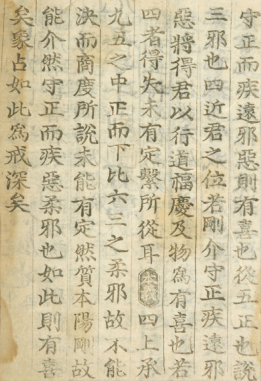 守正而疾遠邪惡則有喜也從五正也說
三邪也四近君之位若剛介守正疾遠邪
惡將得君以行道福慶及物爲有喜也若
四者得失未有定繫所從耳 本義 四上承
九五之中正而下比六三之柔邪故不能
決而商度所說未能有定然質本陽剛故
能介然守正而疾惡柔邪也如此則有喜
矣象占如此爲戒深矣